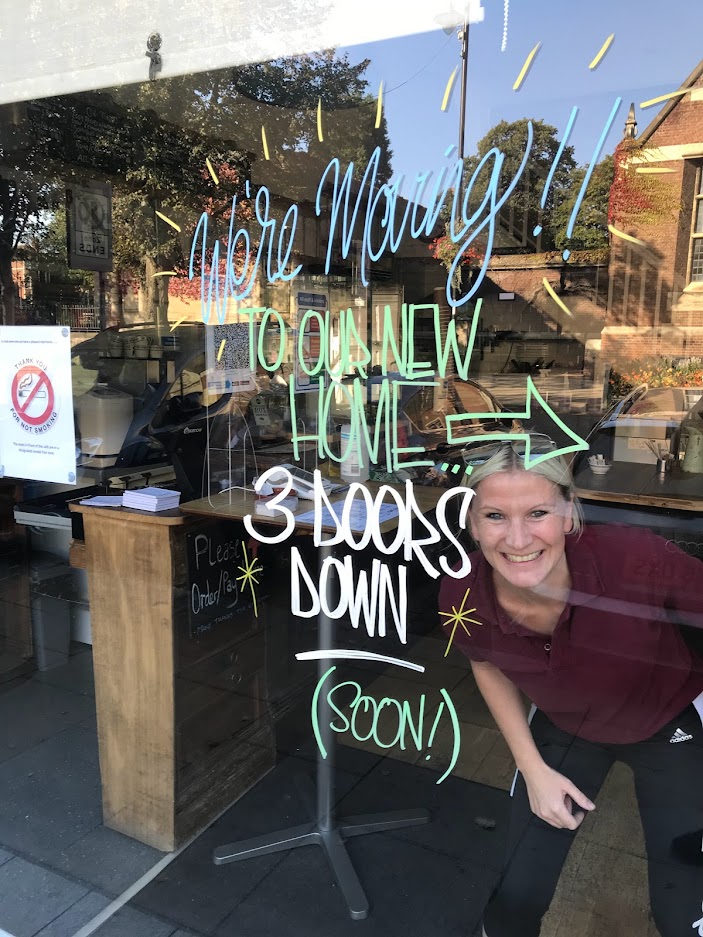 We're Moving!!
TO OUR NEW
HOME...
3 DOORS
DOWN
(SOON!)
THANK YOU
FOR NOT SMOKING
Please
Order/Pay
adidas